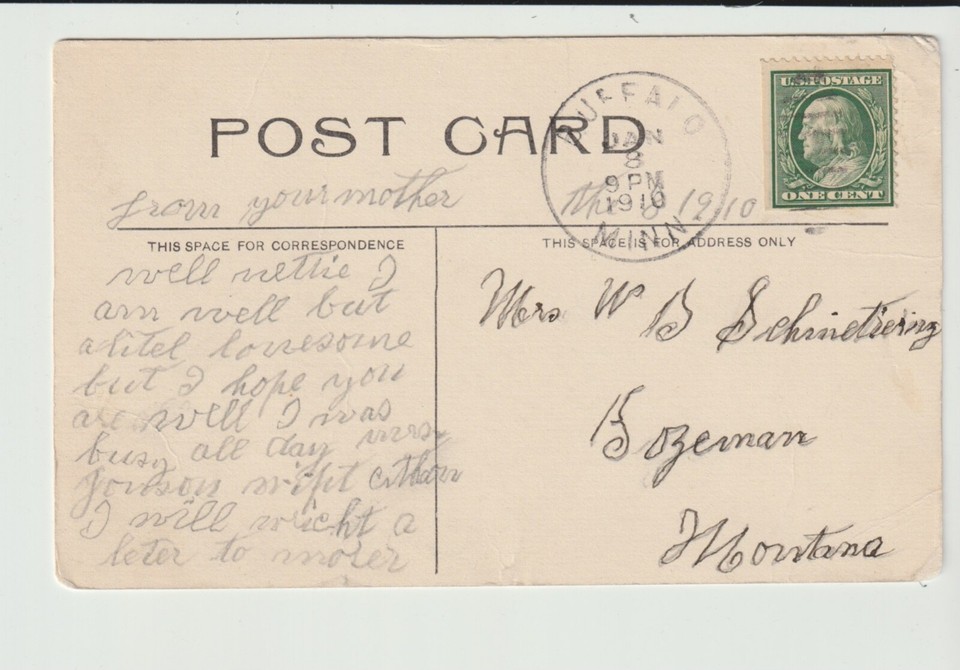 U.S. POSTAGE
ONE CENT
BUFFALO
JAN
8
9 PM
1910
MINN
POST CARD
from your mother the 8 1910
THIS SPACE FOR CORRESPONDENCE
THIS SPACE IS FOR ADDRESS ONLY
well nettie I
am well but
a litel lonesome
but I hope you
are well I was
busy all day
I will wricht a
leter to
Mrs W B
Bozeman
Montana